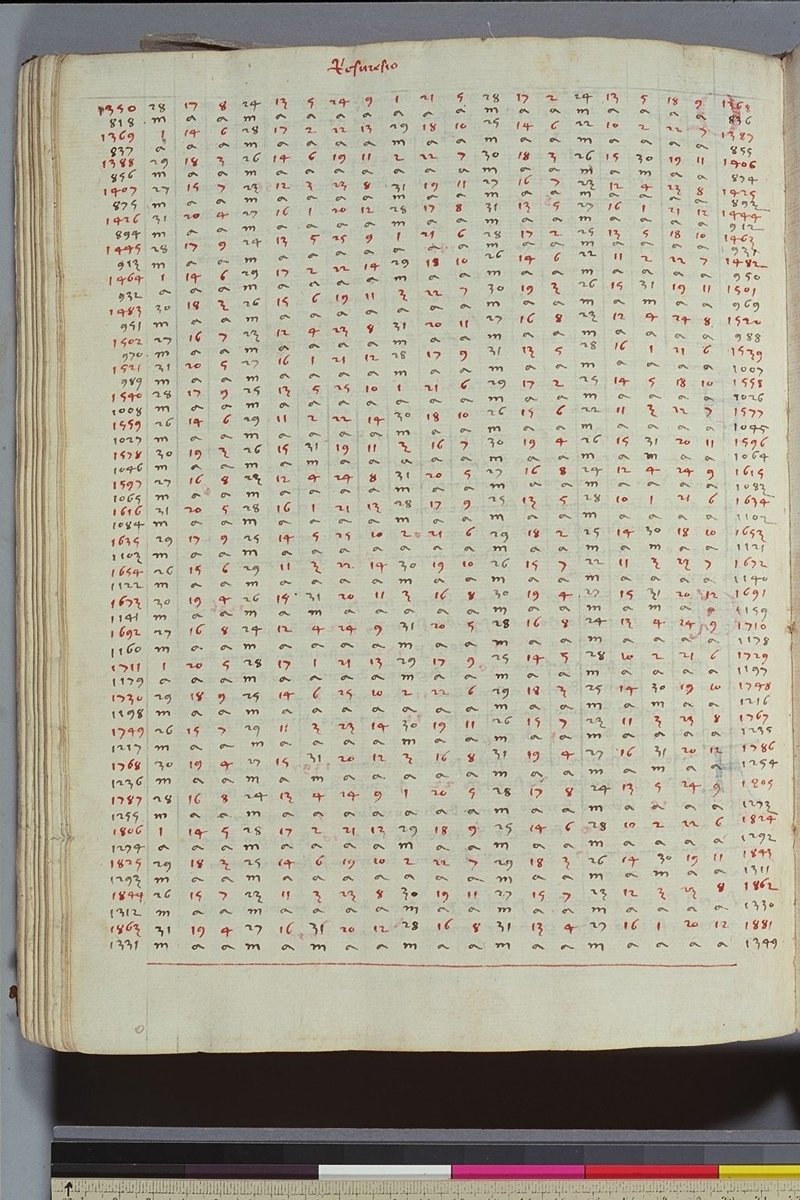 Resuresio
1350 28 17 8 24 13 5 24 9 1 21 5 28 17 2 24 13 5 18 9 1368
818 m a a m a a a a a a a m a a m a a a a 836
1369 1 14 6 28 17 2 22 13 29 18 10 25 14 6 22 10 2 22 7 1387
837 a a a m a a a a m a a m a a m a a a a 855
1388 29 18 3 26 14 6 19 11 2 22 7 30 18 3 26 15 30 19 11 1406
856 m a a m a a a a a a a m a a m a m a a 874
1407 27 15 7 23 12 3 23 8 31 19 11 27 16 7 23 12 4 23 8 1425
875 m a a m a a a a m a a m a a m a a a a 893
1426 31 20 4 27 16 1 20 12 28 17 8 31 13 5 27 16 1 21 12 1444
894 m a a m a a a a m a a m a a m a a a a 912
1445 28 17 9 24 13 5 25 9 1 21 6 28 17 2 25 13 5 18 10 1463
913 m a a m a a a a a a a m a a m a a a a 931
1464 1 14 6 29 17 2 22 14 29 18 10 26 14 6 22 11 2 22 7 1482
932 a a a m a a a a m a a m a a m a a a a 950
1483 30 18 3 26 15 6 19 11 3 22 7 30 19 3 26 15 31 19 11 1501
951 m a a m a a a a a a a m a a m a m a a 969
1502 27 16 7 23 12 4 23 8 31 20 11 27 16 8 23 12 4 24 8 1520
970 m a a m a a a a m a a m a a m a a a a 988
1521 31 20 5 27 16 1 21 12 28 17 9 31 13 5 28 16 1 21 6 1539
989 m a a m a a a a m a a m a a m a a a a 1007
1540 28 17 9 25 13 5 25 10 1 21 6 29 17 2 25 14 5 18 10 1558
1008 m a a m a a a a a a a m a a m a a a a 1026
1559 26 14 6 29 11 2 22 14 30 18 10 26 15 6 22 11 3 22 7 1577
1027 m a a m a a a a m a a m a a m a a a a 1045
1578 30 19 3 26 15 31 19 11 3 16 7 30 19 4 26 15 31 20 11 1596
1046 m a a m a m a a a a a m a a m a m a a 1064
1597 27 16 8 23 12 4 24 8 31 20 5 27 16 8 24 12 4 24 9 1615
1065 m a a m a a a a m a a m a a m a a a a 1083
1616 31 20 5 28 16 1 21 13 28 17 9 25 13 5 28 10 1 21 6 1634
1084 m a a m a a a a m a a m a a m a a a a 1102
1635 29 17 9 25 14 5 25 10 2 21 6 29 18 2 25 14 30 18 10 1653
1103 m a a m a a a a a a a m a a m a m a a 1121
1654 26 15 6 29 11 3 22 14 30 19 10 26 15 7 22 11 3 23 7 1672
1122 m a a m a a a a m a a m a a m a a a a 1140
1673 30 19 4 26 15 31 20 11 3 16 8 30 19 4 27 15 31 20 12 1691
1141 m a a m a m a a a a a m a a m a m a a 1159
1692 27 16 8 24 12 4 24 9 31 20 5 28 16 8 24 13 4 24 9 1710
1160 m a a m a a a a m a a m a a m a a a a 1178
1711 1 20 5 28 17 1 21 13 29 17 9 25 14 5 28 10 2 21 6 1729
1179 a a a m a a a a m a a m a a m a a a a 1197
1730 29 18 9 25 14 6 25 10 2 22 6 29 18 3 25 14 30 19 10 1748
1198 m a a m a a a a a a a m a a m a m a a 1216
1749 26 15 7 29 11 3 23 14 30 19 11 26 15 7 23 11 3 23 8 1767
1217 m a a m a a a a m a a m a a m a a a a 1235
1768 30 19 4 27 15 31 20 12 3 16 8 31 19 4 27 16 31 20 12 1786
1236 m a a m a m a a a a a m a a m a m a a 1254
1787 28 16 8 24 13 4 24 9 1 20 5 28 17 8 24 13 5 24 9 1805
1255 m a a m a a a a a a a m a a m a a a a 1273
1806 1 14 5 28 17 2 21 13 29 18 9 25 14 6 28 10 2 22 6 1824
1274 a a a m a a a a m a a m a a m a a a a 1292
1825 29 18 3 25 14 6 19 10 2 22 7 29 18 3 26 14 30 19 11 1843
1293 m a a m a a a a a a a m a a m a m a a 1311
1844 26 15 7 23 11 3 23 8 30 19 11 27 15 7 23 12 3 23 8 1862
1312 m a a m a a a a m a a m a a m a a a a 1330
1863 31 19 4 27 16 31 20 12 28 16 8 31 13 4 27 16 1 20 12 1881
1331 m a a m a m a a m a a m a a m a a a a 1349